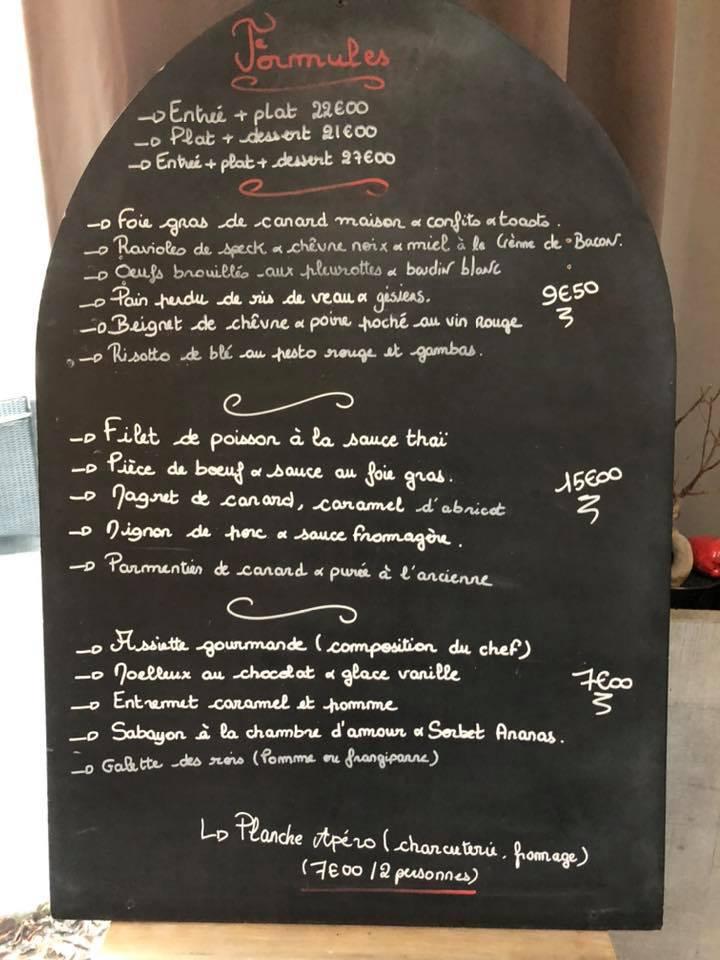 Formules
Entreé + plat 22€00
Plat + dessert 21€00
Entreé + plat + dessert 27€00
Foie gras de canard maison & confits & toasts.
Ravioles de speck & chêvre noix & miel à la Crème de Bacon.
Oeufs brouillés aux pleurottes & boudin blanc
Pain perdu de ris de veau & gésiers.
9€50
Beignet de chêvre & poire poché au vin Rouge
Risotto de blé au pesto rouge et gambas.
Filet de poisson à la sauce thaï
Pièce de boeuf & sauce au foie gras.
15€00
Magret de canard, caramel d'abricot
Mignon de porc & sauce fromagère.
Parmentier de canard & purée à l'ancienne
Assiette gourmande (composition du chef)
Moelleux au chocolat & glace vanille
7€00
Entremet caramel et pomme
Sabayon à la chambre d'amour & Sorbet Ananas.
Galette des rois (Pomme ou frangipanne)
Planche Apéro (charcuterie, fromage)
(7€00 / 2 personnes)